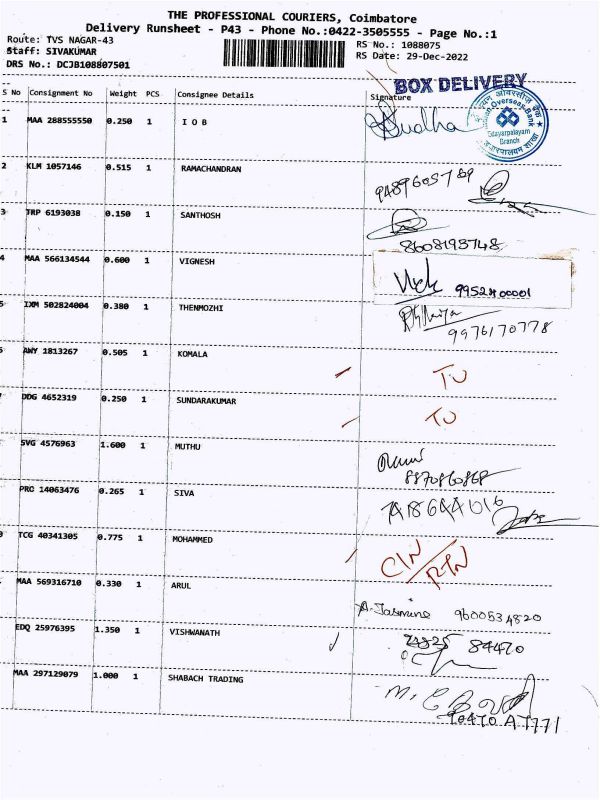 THE PROFESSIONAL COURIERS, Coimbatore
Delivery Runsheet - P43 - Phone No.:0422-3505555 - Page No.:1
Route: TVS NAGAR-43 RS No.: 1088075
Staff: SIVAKUMAR RS Date: 29-Dec-2022
DRS No.: DCJB108807501
BOX DELIVERY
S No Consignment No Weight PCS Consignee Details Signature
1 MAA 288555550 0.250 1 I O B Sudha
Indian Overseas Bank
Edayarpalayam
Branch
2 KLM 1057146 0.515 1 RAMACHANDRAN
3 TRP 6193038 0.150 1 SANTHOSH
8608193748
4 MAA 566134544 0.600 1 VIGNESH
IXM 502824004 0.380 1 THENMOZHI
9976170778
AWY 1813267 0.505 1 KOMALA TU
DDG 4652319 0.250 1 SUNDARAKUMAR TU
SVG 4576963 1.600 1 MUTHU
8870860868
PRC 14063476 0.265 1 SIVA
TCG 40341305 0.775 1 MOHAMMED CIN/RTN
MAA 569316710 0.330 1 ARUL
A. Jasmine 9600534820
EDQ 25976395 1.350 1 VISHWANATH 84470
MAA 297129079 1.000 1 SHABACH TRADING